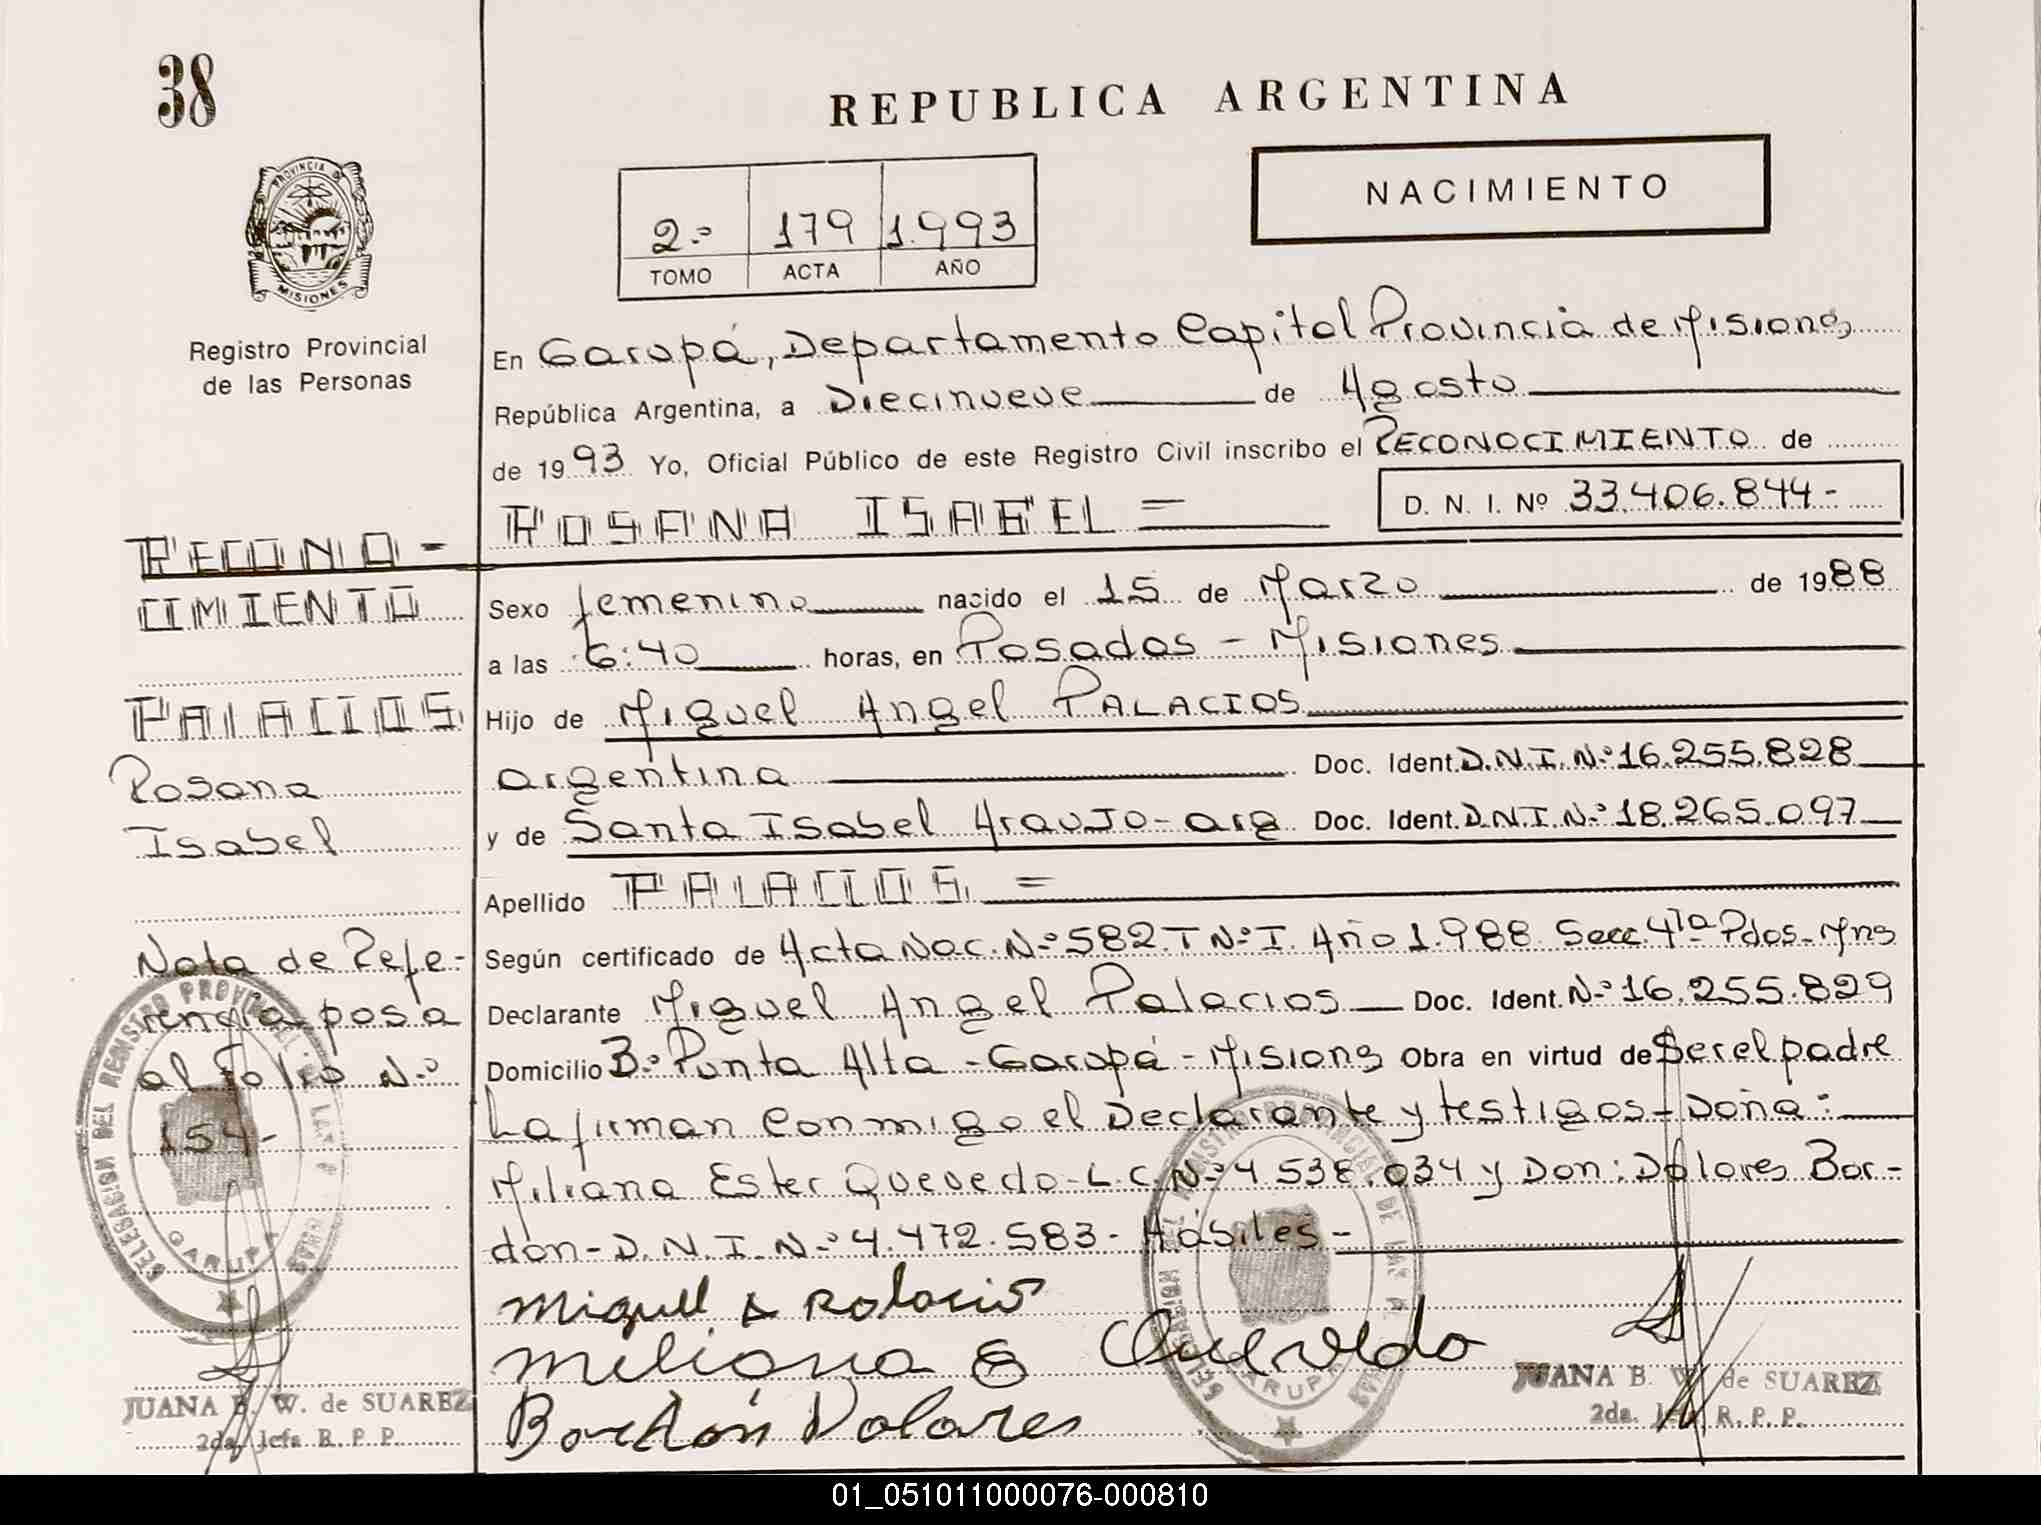 38
REPUBLICA ARGENTINA
NACIMIENTO
2.º 179 1.993
TOMO ACTA AÑO
PROVINCIA DE
MISIONES
Registro Provincial
de las Personas
En Garupá, Departamento Capital Provincia de Misiones,
República Argentina, a Diecinueve de Agosto
de 1993 Yo, Oficial Público de este Registro Civil inscribo el RECONOCIMIENTO de
ROSANA ISABEL = D. N. I. Nº 33.406.844.-
Sexo femenino nacido el 15 de Marzo de 1988
a las 6:40 horas, en Posadas - Misiones
Hijo de Miguel Angel PALACIOS
argentina Doc. Ident. D.N.I. N.º 16.255.828
y de Santa Isabel Araujo - arg Doc. Ident. D.N.I. N.º 18.265.097
Apellido PALACIOS =
Según certificado de Acta Nac. N.º 582. T N.º I. Año 1.988 Secc. 4ta Pdas - Mns
Declarante Miguel Angel Palacios Doc. Ident. N.º 16.255.829
Domicilio B.º Punta Alta - Garupá - Misions Obra en virtud de Ser el padre
La firman Conmigo el Declarante y testigos - Doña:
Miliana Ester Quevedo - L.C. N.º 4.538.034 y Don: Dolores Bor-
don - D.N.I. N.º 4.472.583 - Hábiles -
Miguel A Palacio
Meliana E Quevedo
Bordón Dolores
JUANA B. W. de SUAREZ
2da. Jefa R. P. P.
RECONO-
CIMIENTO
PALACIOS
Rosana
Isabel
Nota de Refe-
rencia posa
al folio N.º
154.-
DELEGACION DEL REGISTRO PROVINCIAL DE LAS
GARUPA
JUANA B. W. de SUAREZ
2da. Jefa R. P. P.
DELEGACION DEL REGISTRO PROVINCIAL DE LAS
GARUPA
01_051011000076-000810